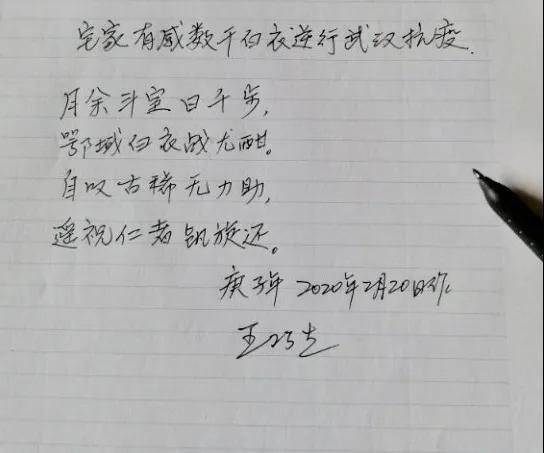 宅家有感数千白衣逆行武汉抗疫.
月余斗室日千步,
鄂域白衣战尤酣。
自叹古稀无力助,
遥祝仁者凯旋还。
庚子年 2020年2月20日作.
王